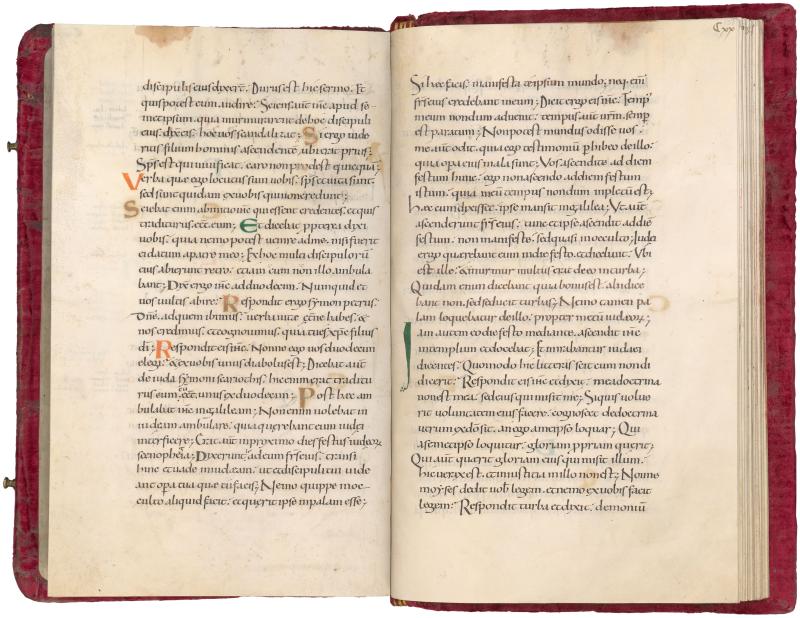 discipulis eius dixer̄t. Durus est hic sermo. Et
quis potest eum audire? Sciens aut̄ ih̄c apud se-
metipsum. quia murmurarent de hoc discipuli
eius. dix̄ eis. hoc vos scandalizat; Si ergo vide
ritis filium hominis ascendentē ubi erat prius;
Sp̄s est qui vivificat. caro non prodest quicquā;
Verba que ego locutus sum vobis. sp̄s et vita sunt.
sed sunt quidam ex vobis qui non credunt;
Sciebat enim ab initio ih̄c qui essent credentes. et quis
traditurus eēt eum; Et dicebat ppterea dixi
vobis. quia nemo potest venire ad me. nisi fuerit
ei datum a patre meo; Ex hoc multi discipulorū
eius abierunt retro. et iam cum non illo ambula
bant; Dix̄ ergo ih̄c ad duodecim. Numquid et
vos vultis abire? Respondit ergo symon petrus.
Dn̄e. ad quem ibimus? verba vitæ et̄ne habes. &
nos credimus. et cognovimus. quia tu es xp̄c filius
dī; Respondit eis ih̄c. Nonne ego vos duodecim
elegi. & ex vobis unus diabolus est; Dicebat aut̄
de iuda symonis cariothis. hic enim erat traditu
rus eum. cū eēt unus ex duodecim; Post hæc am
bulabat ih̄c in galileam; Non enim volebat in
iudeam ambulare. quia querebant eum iudei
interficere; Erat aut̄ in proximo dies festus iudeor̄
scenophegia; Dixerunt aut̄ ad eum fr̄s eius. transi
hinc et vade in iudeam. ut et discipuli tui vide
ant opera tua quæ tu facis; Nemo quippe in oc-
culto aliquid facit. et querit ipse in palam esse;
Cxx
Si hec facis. manifesta te ipsum mundo; neq. enī
fr̄s eius credebant in eum; Dicit ergo eis ih̄c. Temp'
meum nondum advenit. tempus aut̄ vr̄m semp̄
est paratum; Non potest mundus odisse vos.
me aut̄ odit. quia ego testimoniū phibeo de illo.
quia opera eius mala sunt; Vos ascendite ad diem
festum hunc. ego non ascendo ad diem festum
istum. quia meū tempus nondum impletū est;
hæc cum dixisset. ipse mansit in galilea; Ut aut̄
ascenderunt fr̄s eius. tunc et ipse ascendit ad diē
festum. non manifeste. sed quasi in occulto; Iudei
ergo querebant eum in die festo. et dicebant. Ubi
est ille? et murmur multus erat de eo in turba;
Quidam enim dicebant quia bonus est. alii dice
bant non. sed seducit turbas; Nemo tamen pa
lam loquebatur de illo. propter metū iudæor̄;
Iam autem eo die festo mediante. ascendit ih̄c
in templum et docebat; Et mirabantur iudæi
dicentes. Quomodo hic litteras scit cum non di
dicerit? Respondit eis ih̄c et dixit. mea doctrina
non est mea. sed eius qui misit me; Siquis volue
rit voluntatem eius facere. cognoscet de doctrina
utrum ex dō sit. an ego a me ipso loquar; Qui
a semetipso loquitur. gloriam ppriam querit;
Qui aut̄ querit gloriam eius qui misit illum.
hic verax est. et iniustitia in illo non est; Nonne
moyses dedit vob̄ legem. et nemo ex vobis facit
legem? Respondit turba et dixit. demoniū